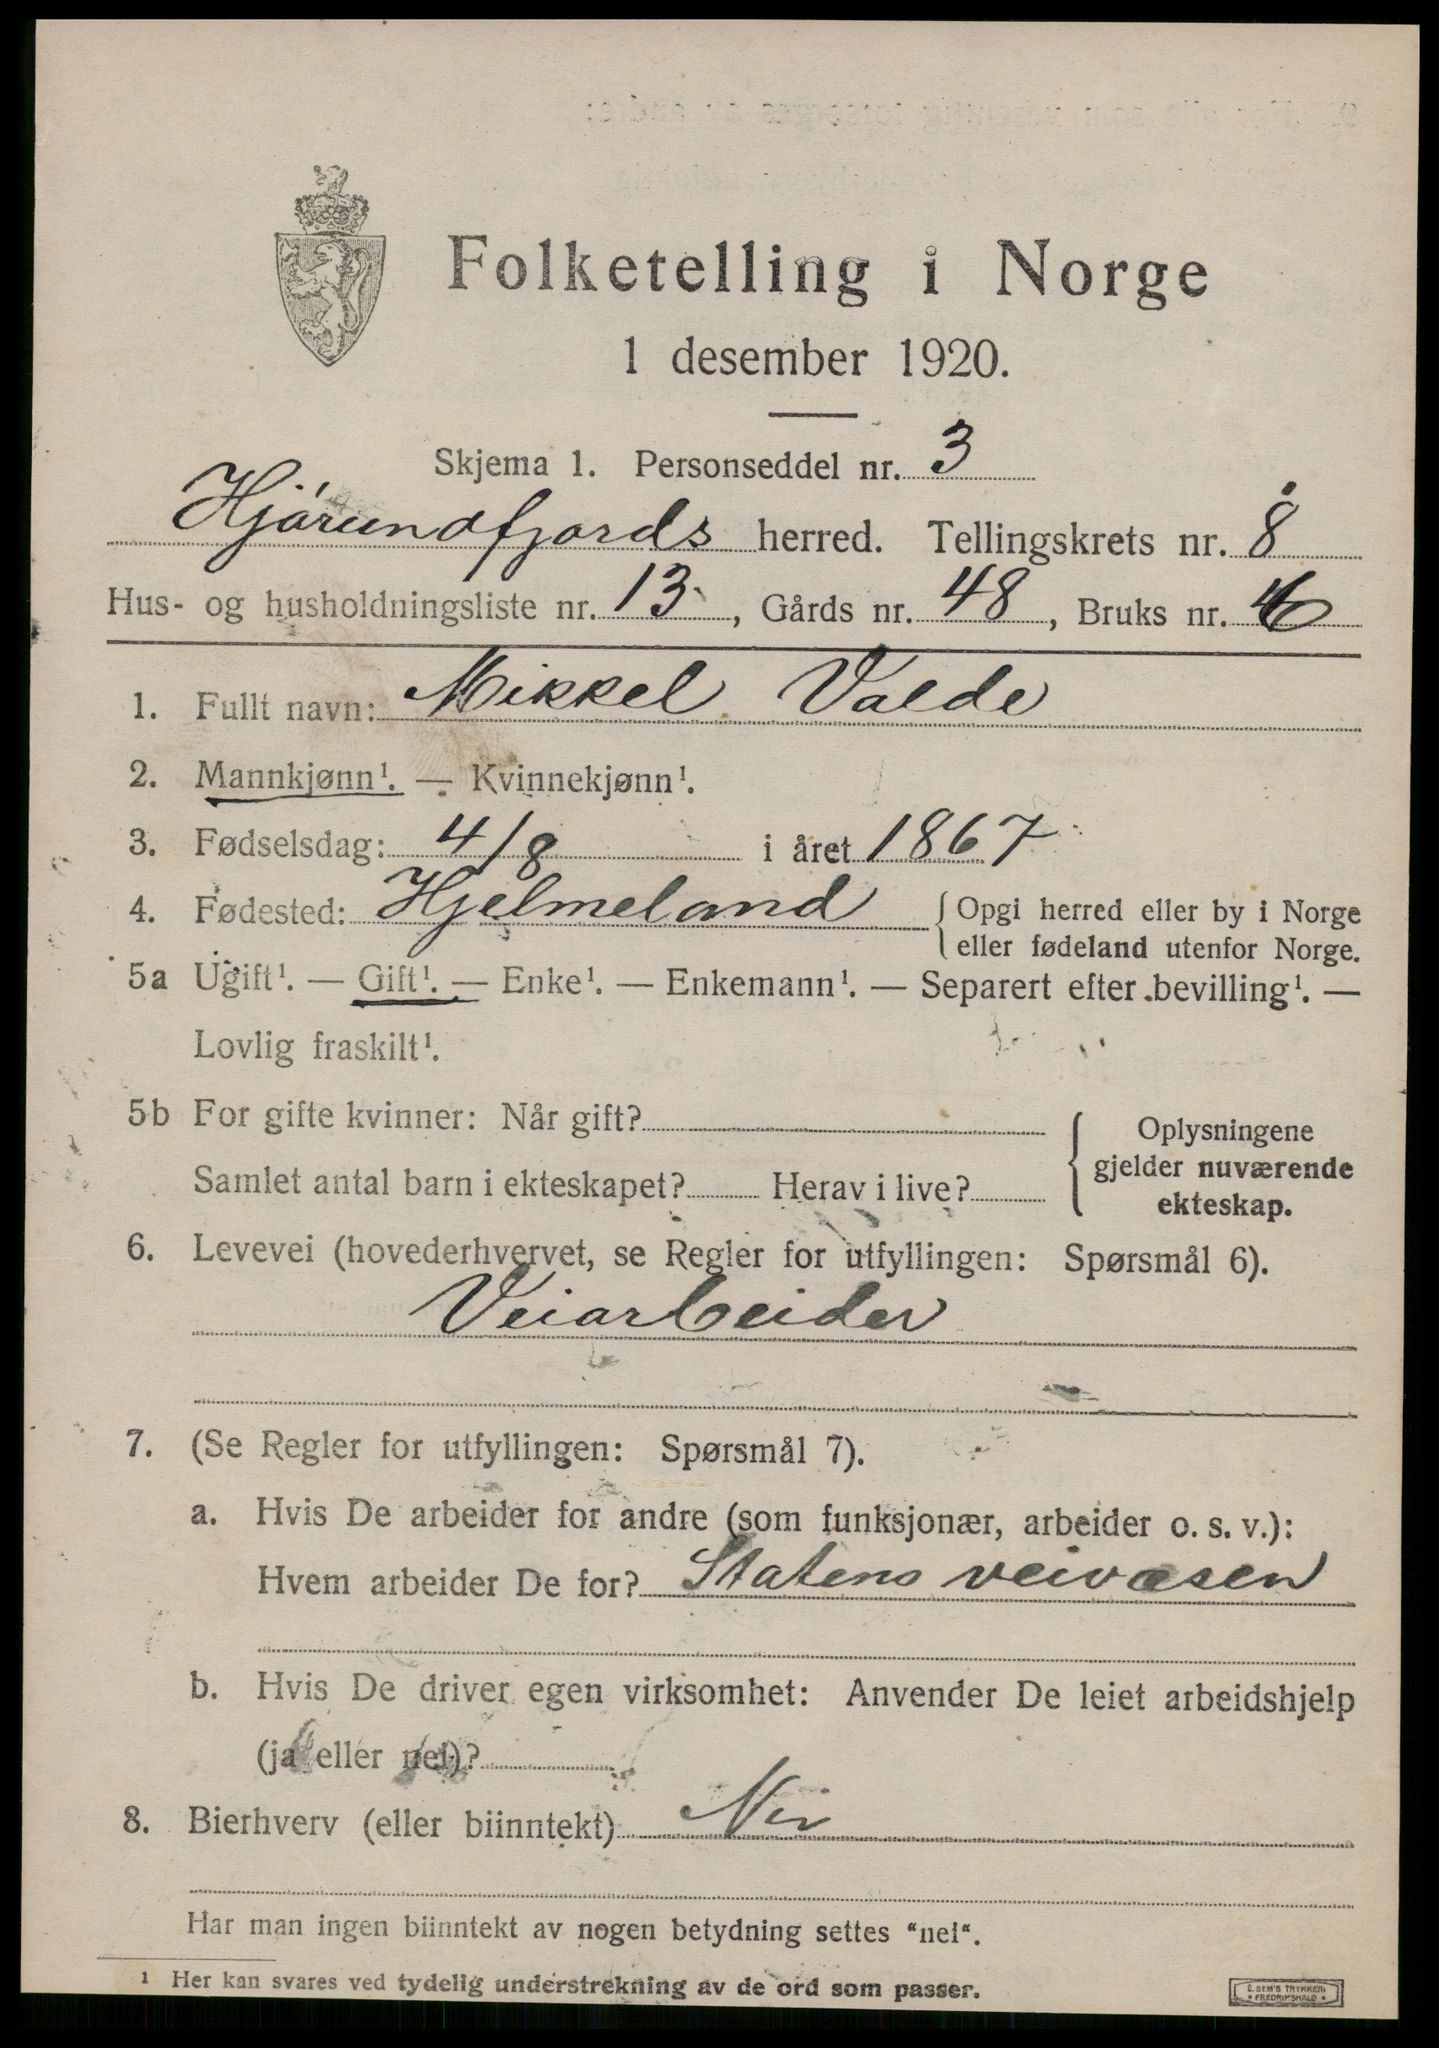 Folketelling i Norge
1 desember 1920.
Skjema 1. Personseddel nr. 3
Hjørundfjords herred. Tellingskrets nr. 8
Hus- og husholdningsliste nr. 13, Gårds nr. 48, Bruks nr.
1. Fullt navn: Mikkel Valde
2. Mannkjønn¹. — Kvinnekjønn¹.
3. Fødselsdag: 4/8 i året 1867
4. Fødested: Hjelmeland { Opgi herred eller by i Norge
eller fødeland utenfor Norge.
5a Ugift¹. — Gift¹. — Enke¹. — Enkemann¹. — Separert efter bevilling¹. —
Lovlig fraskilt¹.
5b For gifte kvinner: Når gift?
Samlet antal barn i ekteskapet? Herav i live?
Oplysningene
gjelder nuværende
ekteskap.
6. Levevei (hovederhvervet, se Regler for utfyllingen: Spørsmål 6).
Veiarbeider
7. (Se Regler for utfyllingen: Spørsmål 7).
a. Hvis De arbeider for andre (som funksjonær, arbeider o. s. v.):
Hvem arbeider De for? Statens veivæsen
b. Hvis De driver egen virksomhet: Anvender De leiet arbeidshjelp
(ja eller nei)?
8. Bierhverv (eller biinntekt) Nei
Har man ingen biinntekt av nogen betydning settes "nei".
¹ Her kan svares ved tydelig understrekning av de ord som passer.
E. SEM'S TRYKKERI
* FREDRIKSHALD *